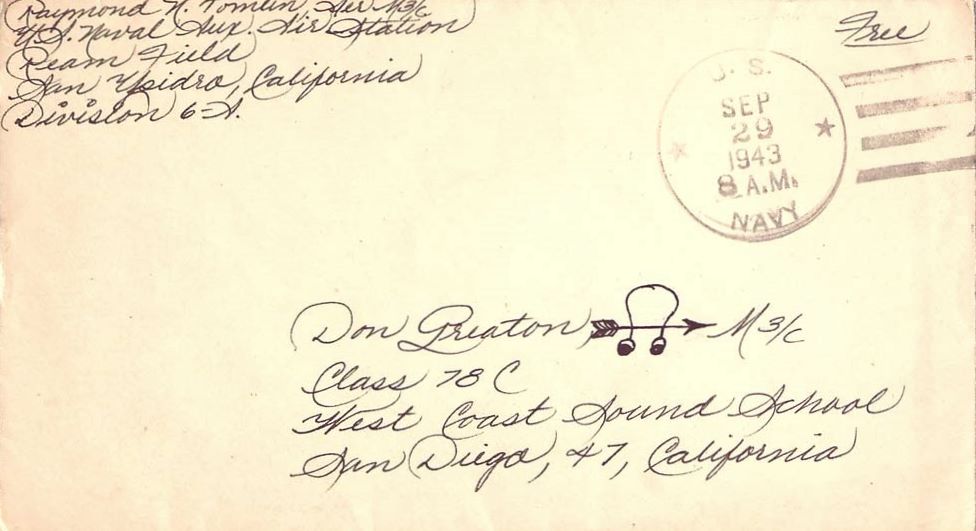 Raymond N. Tomlin, Aer M3/c
U.S. Naval Aux. Air Station
Ream Field
San Ysidro, California
Division 6-A.
Free
U. S.
SEP
29
1943
8 A.M.
NAVY
Don Greaton, M 3/c
Class 78 C
West Coast Sound School
San Diego, 47, California